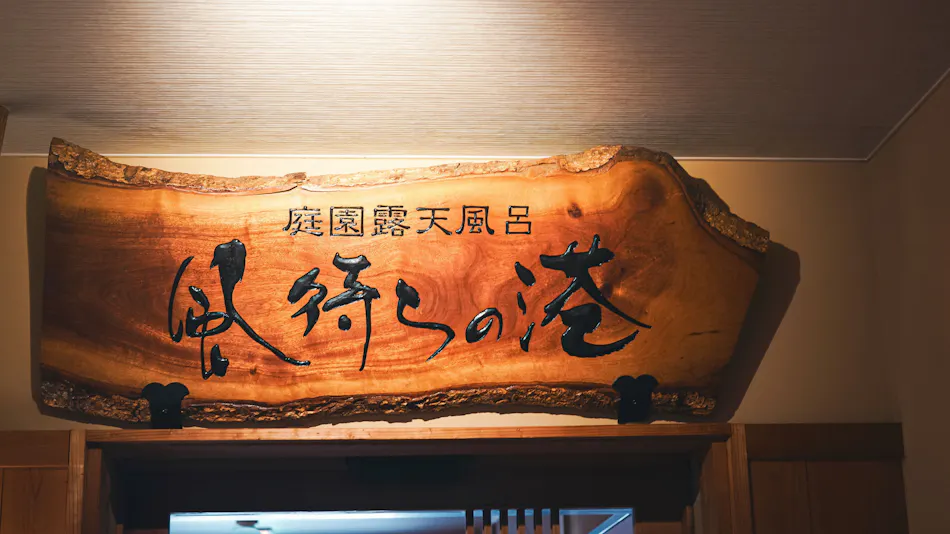 庭園露天風呂
風待ちの港